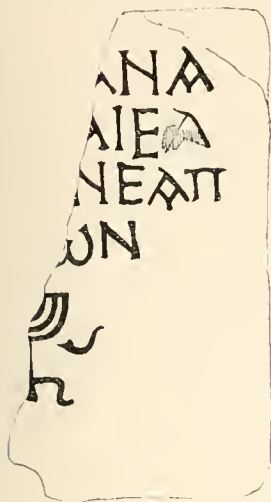 ΑΝΑ
ΑΙΕΑ
ΝΕΑΠ
ωΝ